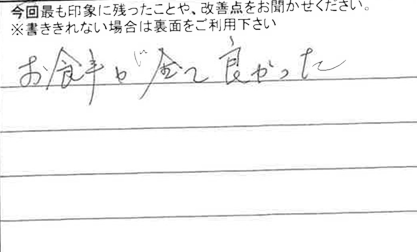 今回最も印象に残ったことや、改善点をお聞かせください。
※書ききれない場合は裏面をご利用下さい
お食事が全て良かった